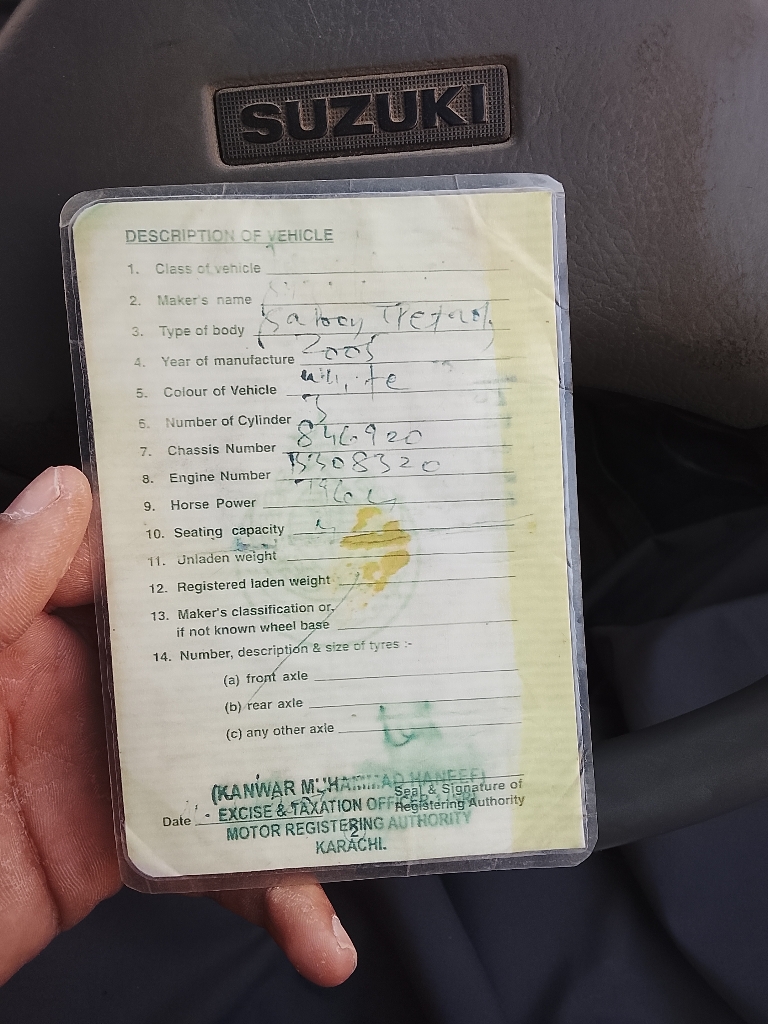 SUZUKI
DESCRIPTION OF VEHICLE
1. Class of vehicle
2. Maker's name
3. Type of body
4. Year of manufacture 2005
5. Colour of Vehicle white
6. Number of Cylinder 3
7. Chassis Number
8. Engine Number
9. Horse Power
10. Seating capacity
11. Unladen weight
12. Registered laden weight
13. Maker's classification or,
if not known wheel base
14. Number, description & size of tyres :-
(a) front axle
(b) rear axle
(c) any other axle
(KANWAR MUHAMMAD HANEEF)
Seal & Signature of
Date EXCISE & TAXATION Registering Authority
MOTOR REGISTERING AUTHORITY
(2)
KARACHI.